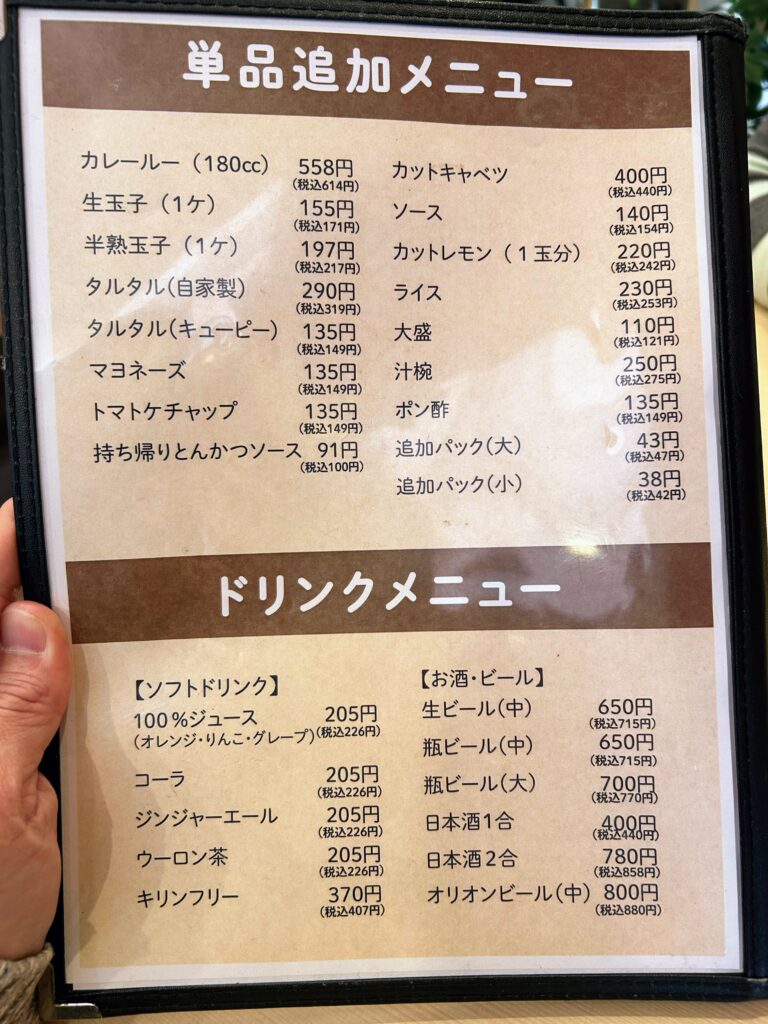 単品追加メニュー
カレールー（180cc） 558円
(税込614円)
生玉子（1ケ） 155円
(税込171円)
半熟玉子（1ケ） 197円
(税込217円)
タルタル(自家製) 290円
(税込319円)
タルタル(キューピー) 135円
(税込149円)
マヨネーズ 135円
(税込149円)
トマトケチャップ 135円
(税込149円)
持ち帰りとんかつソース 91円
(税込100円)
カットキャベツ 400円
(税込440円)
ソース 140円
(税込154円)
カットレモン（1玉分） 220円
(税込242円)
ライス 230円
(税込253円)
大盛 110円
(税込121円)
汁椀 250円
(税込275円)
ポン酢 135円
(税込149円)
追加パック(大) 43円
(税込47円)
追加パック(小) 38円
(税込42円)
ドリンクメニュー
【ソフトドリンク】
100%ジュース 205円
(オレンジ・りんこ・グレープ) (税込226円)
コーラ 205円
(税込226円)
ジンジャーエール 205円
(税込226円)
ウーロン茶 205円
(税込226円)
キリンフリー 370円
(税込407円)
【お酒・ビール】
生ビール(中) 650円
(税込715円)
瓶ビール(中) 650円
(税込715円)
瓶ビール(大) 700円
(税込770円)
日本酒1合 400円
(税込440円)
日本酒2合 780円
(税込858円)
オリオンビール(中) 800円
(税込880円)